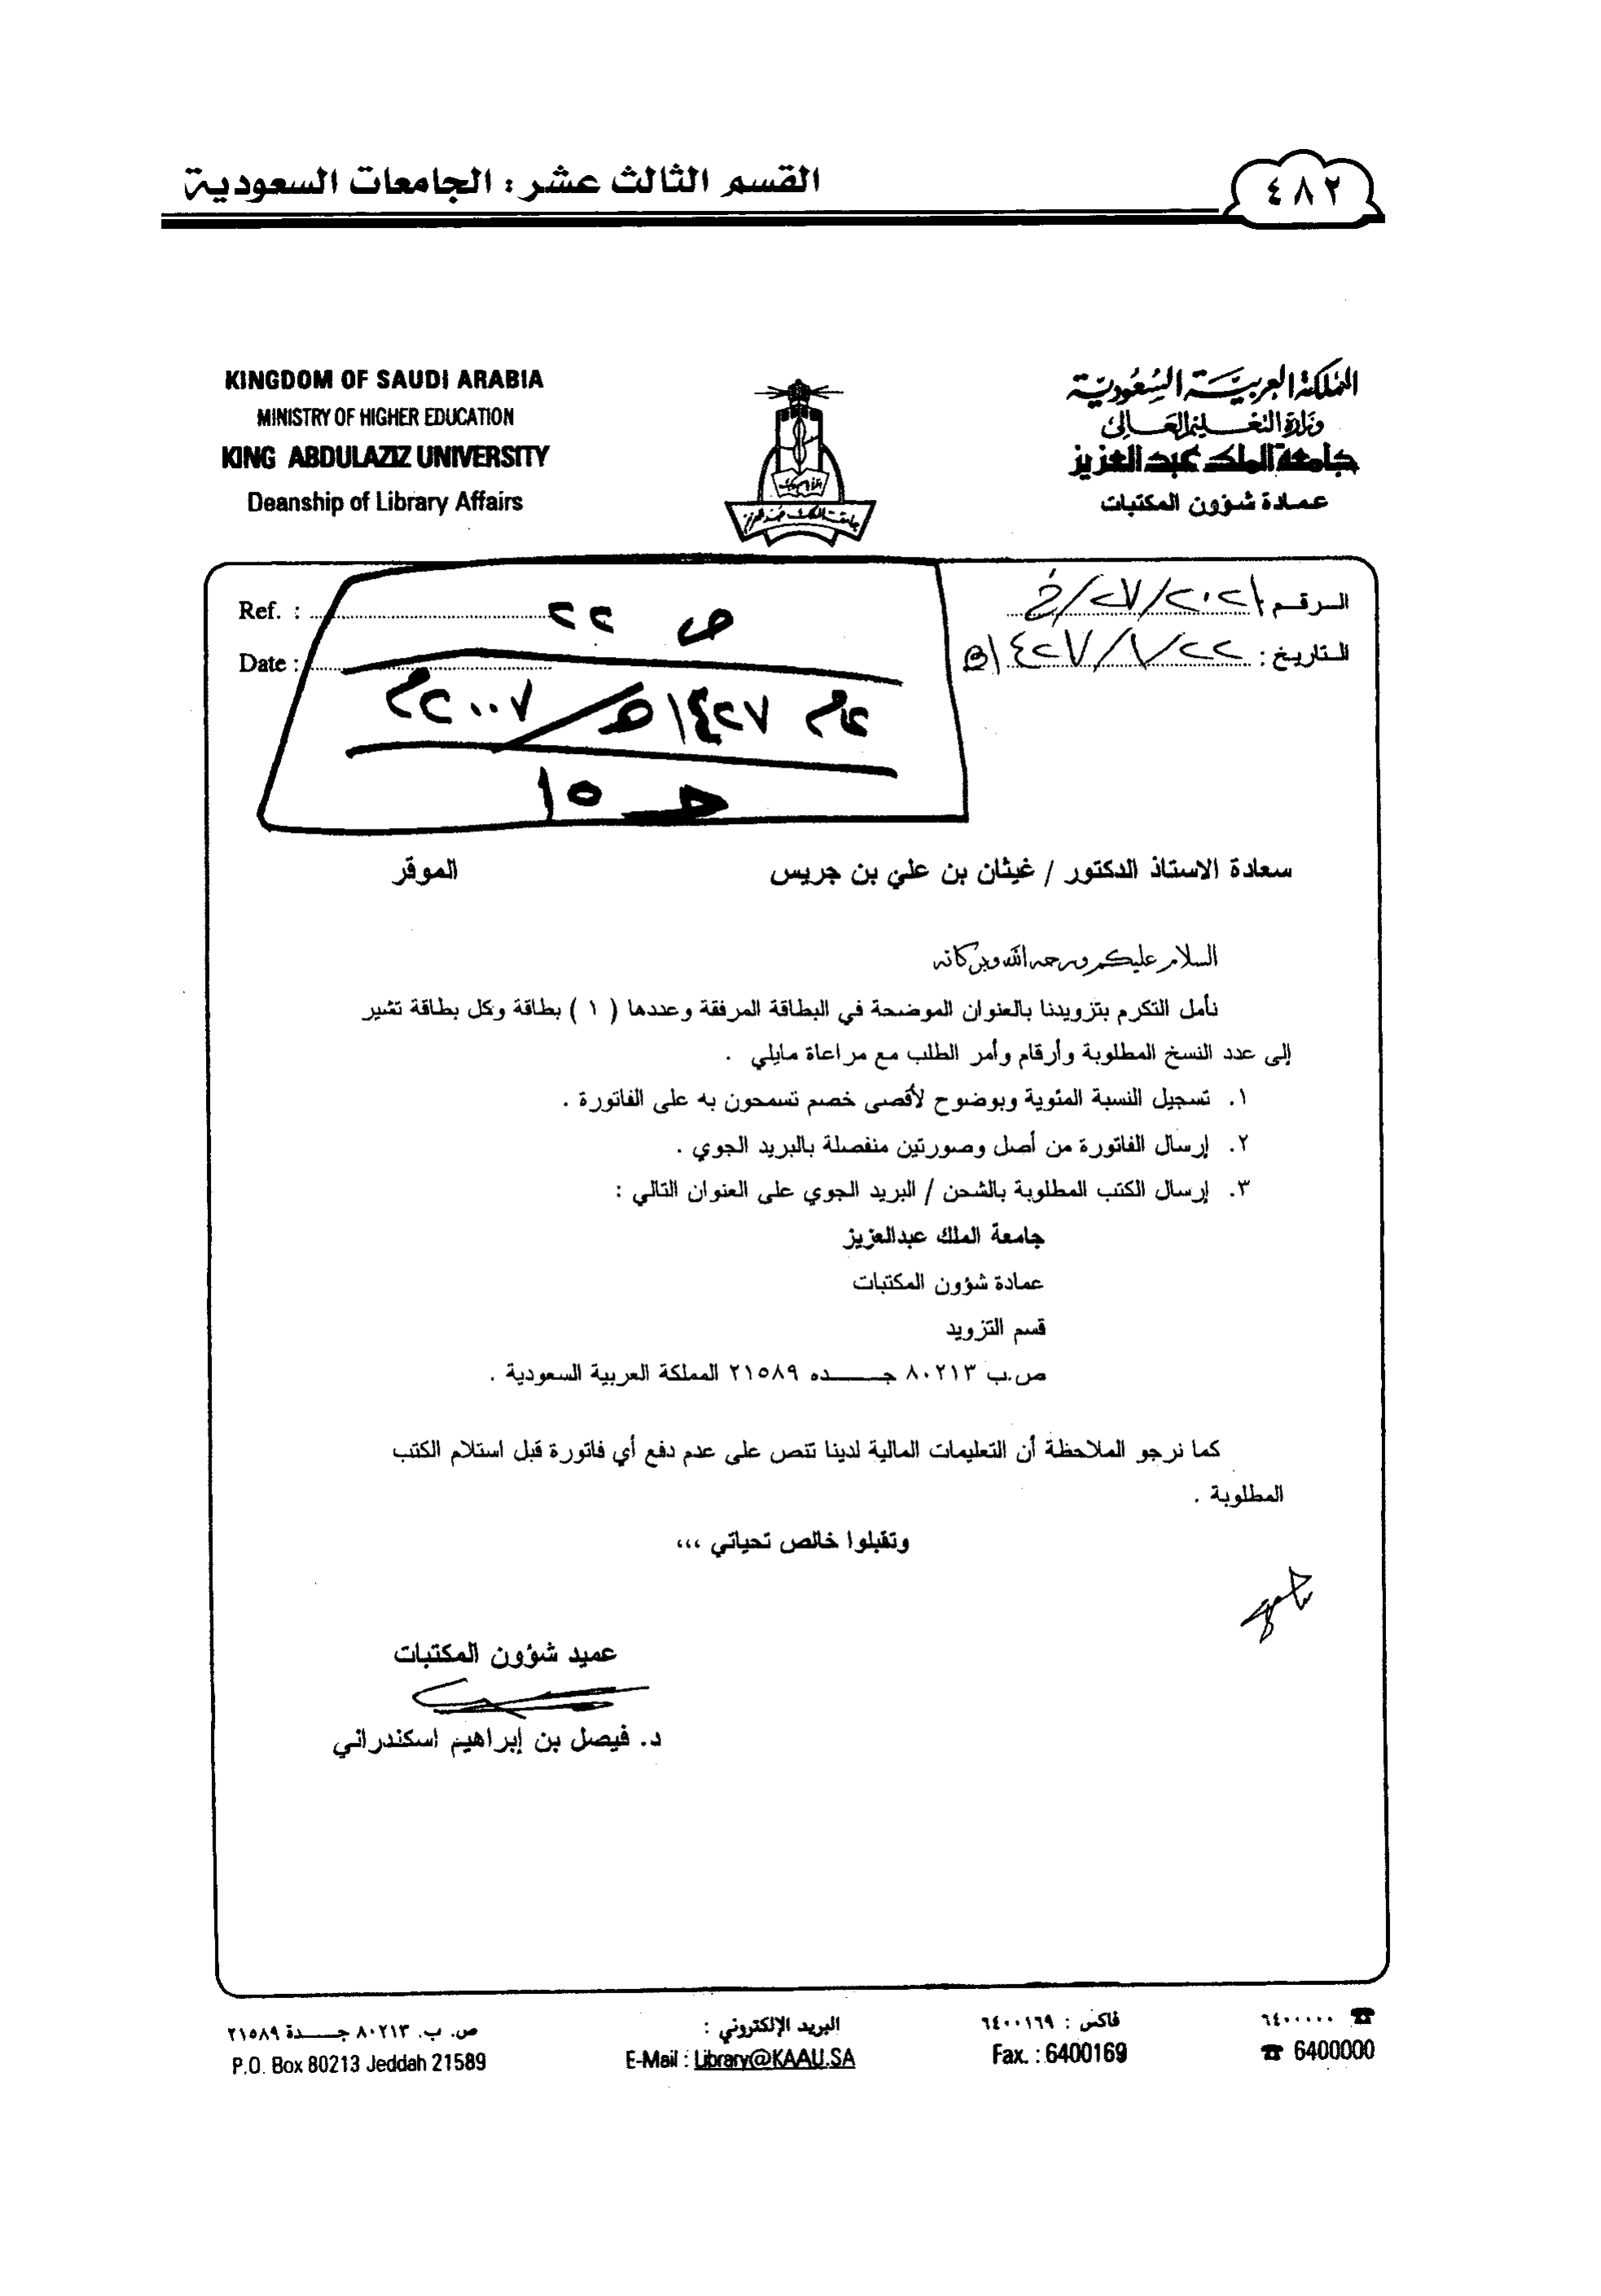 القسم الثالث عشر: الجامعات السعودية
٤٨٢
KINGDOM OF SAUDI ARABIA
MINISTRY OF HIGHER EDUCATION
KING ABDULAZIZ UNIVERSITY
Deanship of Library Affairs
المملكة العربية السعودية
وزارة التعليم العالي
جامعة الملك عبدالعزيز
عمادة شؤون المكتبات
جامعة الملك عبدالعزيز
الرقم
التاريخ: ١٤٢٧/١/٢٢هـ
Ref. :
Date :
ص ٢٢
عام ١٤٢٧هـ/٢٠٠٧م
جـ ١٥
سعادة الاستاذ الدكتور / غيثان بن علي بن جريس الموقر
السلام عليكم ورحمة الله وبركاته
نأمل التكرم بتزويدنا بالعنوان الموضحة في البطاقة المرفقة وعددها ( ١ ) بطاقة وكل بطاقة تشير
إلى عدد النسخ المطلوبة وأرقام وأمر الطلب مع مراعاة مايلي .
١. تسجيل النسبة المئوية وبوضوح لأقصى خصم تسمحون به على الفاتورة .
٢. إرسال الفاتورة من أصل وصورتين منفصلة بالبريد الجوي .
٣. إرسال الكتب المطلوبة بالشحن / البريد الجوي على العنوان التالي :
جامعة الملك عبدالعزيز
عمادة شؤون المكتبات
قسم التزويد
ص.ب ٨٠٢١٣ جـــده ٢١٥٨٩ المملكة العربية السعودية .
كما نرجو الملاحظة أن التعليمات المالية لدينا تنص على عدم دفع أي فاتورة قبل استلام الكتب
المطلوبة .
وتقبلوا خالص تحياتي ،،،
عميد شؤون المكتبات
د. فيصل بن إبراهيم اسكندراني
☎ ٦٤٠٠٠٠٠
فاكس : ٦٤٠٠١٦٩
البريد الإلكتروني :
ص. ب. ٨٠٢١٣ جـــدة ٢١٥٨٩
☎ 6400000
Fax. : 6400169
E-Mail : Library@KAAU.SA
P.O. Box 80213 Jeddah 21589